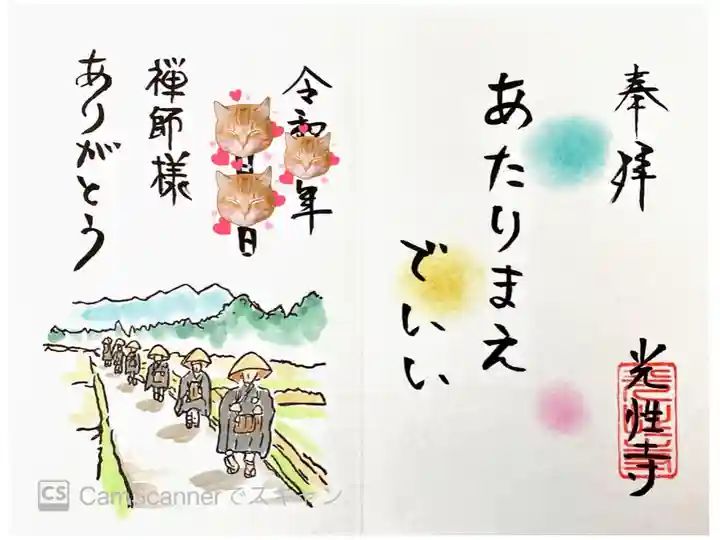 奉拝
あたりまえ
でいい
光性寺
令和 年
月 日
禅師様
ありがとう
CS CamScannerでスキャン